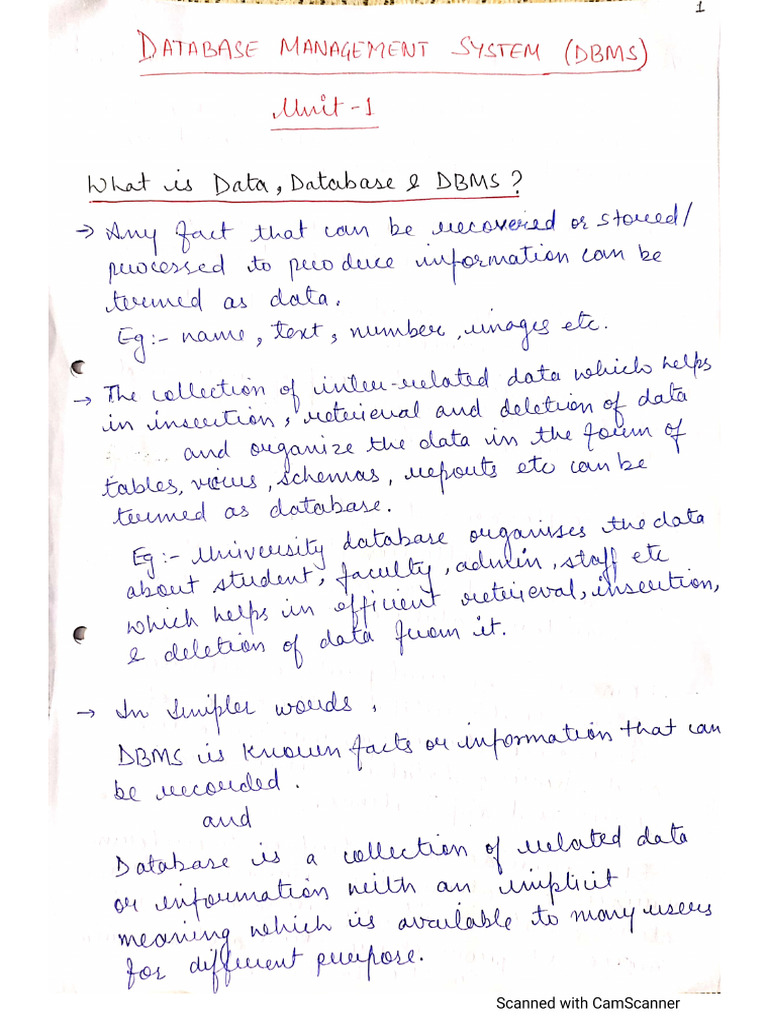 1
DATABASE MANAGEMENT SYSTEM (DBMS)
Unit-1
What is Data, Database & DBMS?
→ Any fact that can be recovered or stored/
processed to produce information can be
termed as data.
Eg:- name, text, number, images etc.
→ The collection of inter-related data which helps
in insertion, retrieval and deletion of data
and organize the data in the form of
tables, views, schemas, reports etc can be
termed as database.
Eg:- University database organises the data
about student, faculty, admin, staff etc
which helps in efficient retrieval, insertion,
& deletion of data from it.
→ In simpler words,
DBMS is known facts or information that can
be recorded.
and
Database is a collection of related data
or information with an implicit
meaning which is available to many users
for different purpose.
Scanned with CamScanner